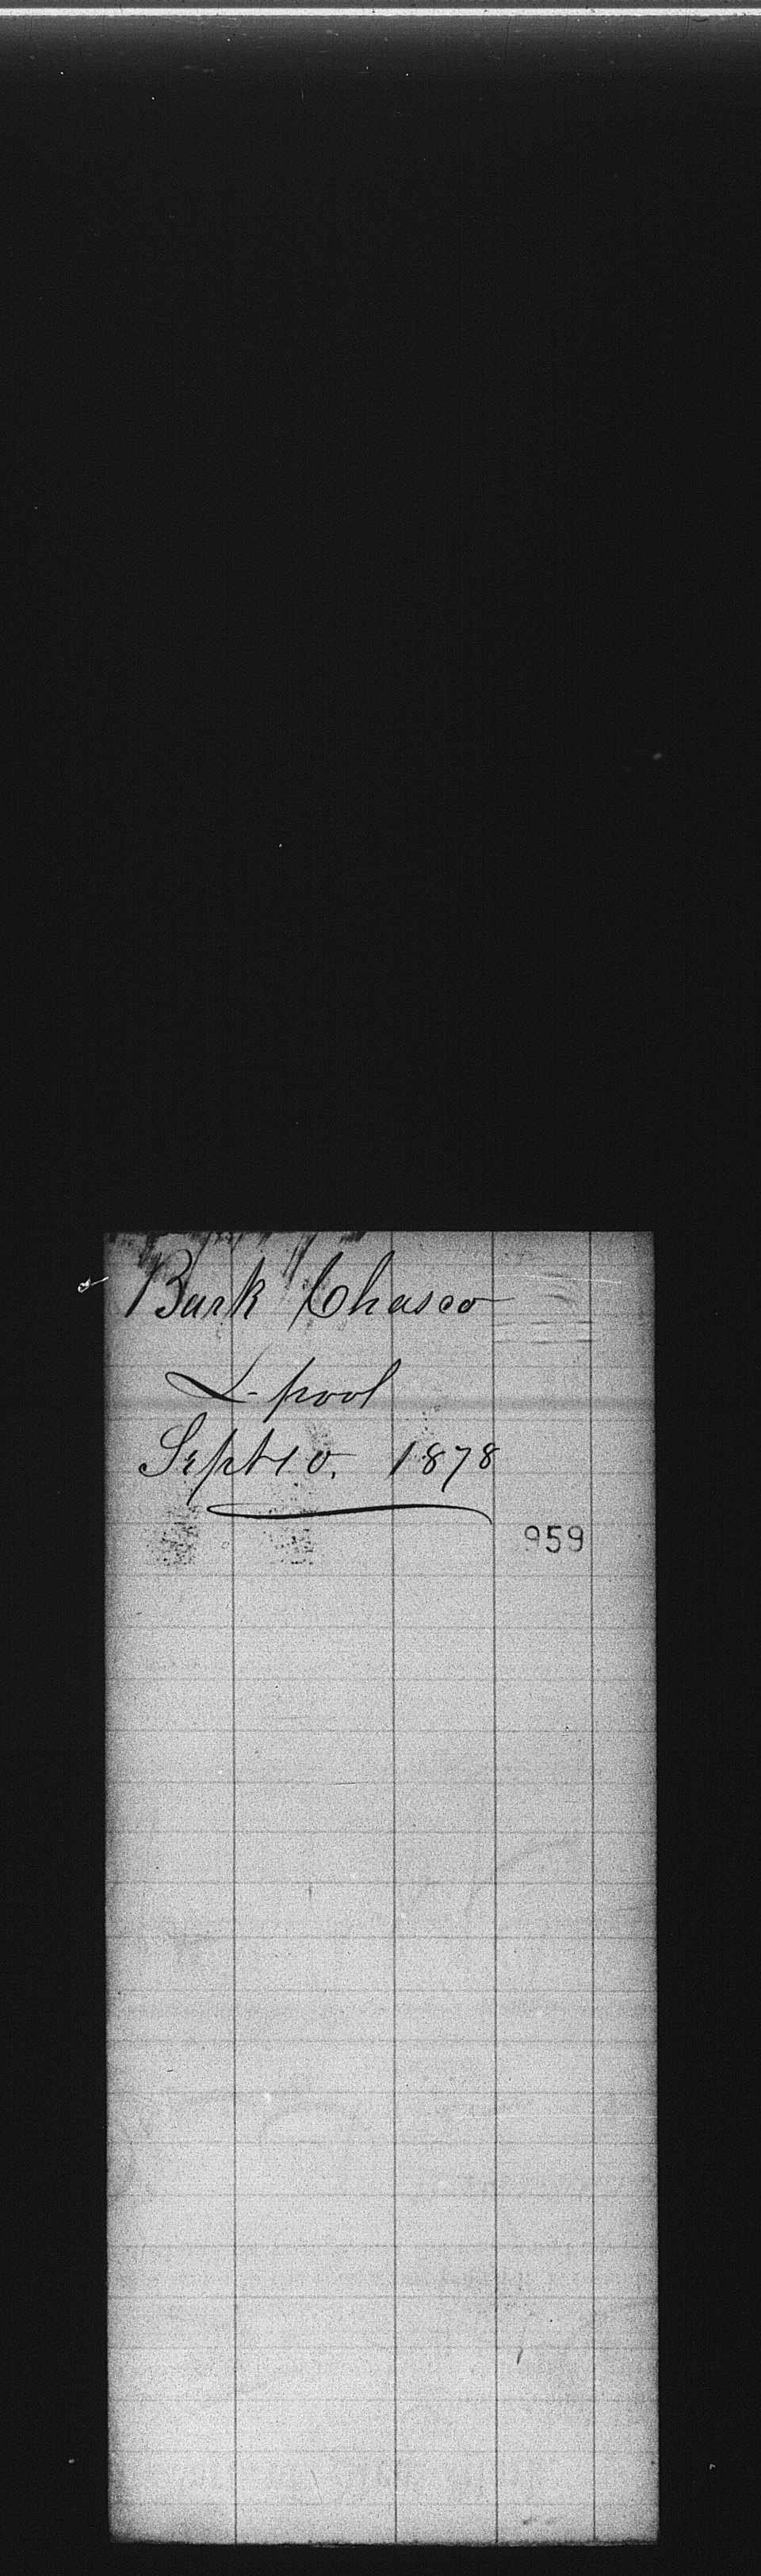 Bark Chasco
L-pool
Sept 10. 1878
959